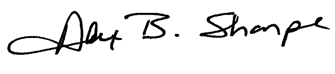 Alex B. Sharpe